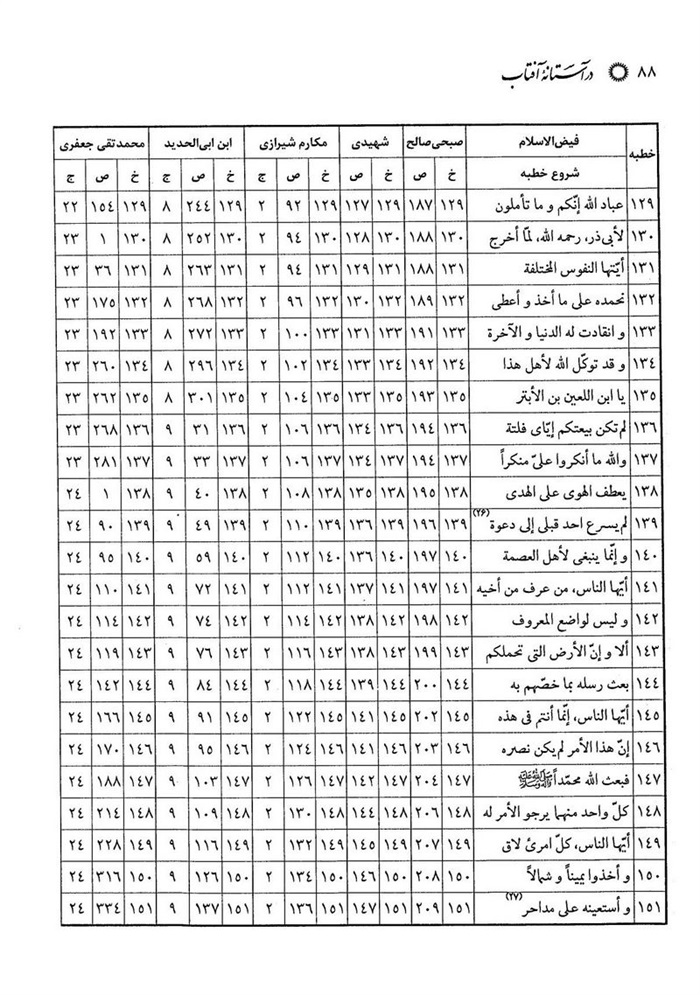 ۸۸ در آستانهٔ آفتاب
خطبه فیض‌الاسلام صبحی‌صالح شهیدی مکارم شیرازی ابن ابی‌الحدید محمدتقی جعفری
شروع خطبه خ ص خ ص خ ص ج خ ص ج خ ص ج
۱۲۹ عباد الله إنّکم و ما تأملون ۱۲۹ ۱۸۷ ۱۲۹ ۱۲۷ ۱۲۹ ۹۲ ۲ ۱۲۹ ۲۴۴ ۸ ۱۲۹ ۱۵۴ ۲۲
۱۳۰ لأبی‌ذر، رحمه الله، لمّا أخرج ۱۳۰ ۱۸۸ ۱۳۰ ۱۲۸ ۱۳۰ ۹۴ ۲ ۱۳۰ ۲۵۲ ۸ ۱۳۰ ۱ ۲۳
۱۳۱ أیّتها النفوس المختلفة ۱۳۱ ۱۸۸ ۱۳۱ ۱۲۹ ۱۳۱ ۹۴ ۲ ۱۳۱ ۲۶۳ ۸ ۱۳۱ ۳۶ ۲۳
۱۳۲ نحمده علی ما أخذ و أعطی ۱۳۲ ۱۸۹ ۱۳۲ ۱۳۰ ۱۳۲ ۹۶ ۲ ۱۳۲ ۲۶۸ ۸ ۱۳۲ ۱۷۵ ۲۳
۱۳۳ و انقادت له الدنیا و الآخرة ۱۳۳ ۱۹۱ ۱۳۳ ۱۳۱ ۱۳۳ ۱۰۰ ۲ ۱۳۳ ۲۷۲ ۸ ۱۳۳ ۱۹۲ ۲۳
۱۳۴ و قد توکّل الله لأهل هذا ۱۳۴ ۱۹۲ ۱۳۴ ۱۳۳ ۱۳۴ ۱۰۲ ۲ ۱۳۴ ۲۹۶ ۸ ۱۳۴ ۲۶۰ ۲۳
۱۳۵ یا ابن اللعین بن الأبتر ۱۳۵ ۱۹۳ ۱۳۵ ۱۳۳ ۱۳۵ ۱۰۴ ۲ ۱۳۵ ۳۰۱ ۸ ۱۳۵ ۲۶۲ ۲۳
۱۳۶ لم تکن بیعتکم إیّای فلتة ۱۳۶ ۱۹۴ ۱۳۶ ۱۳۴ ۱۳۶ ۱۰۶ ۲ ۱۳۶ ۳۱ ۹ ۱۳۶ ۲۶۸ ۲۳
۱۳۷ والله ما أنکروا علیّ منکراً ۱۳۷ ۱۹۴ ۱۳۷ ۱۳۴ ۱۳۷ ۱۰۶ ۲ ۱۳۷ ۳۳ ۹ ۱۳۷ ۲۸۱ ۲۳
۱۳۸ یعطف الهوی علی الهدی ۱۳۸ ۱۹۵ ۱۳۸ ۱۳۵ ۱۳۸ ۱۰۸ ۲ ۱۳۸ ۴۰ ۹ ۱۳۸ ۱ ۲۴
۱۳۹ لم یسرع احد قبلی إلی دعوة (۲۶) ۱۳۹ ۱۹۶ ۱۳۹ ۱۳۶ ۱۳۹ ۱۱۰ ۲ ۱۳۹ ۴۹ ۹ ۱۳۹ ۹۰ ۲۴
۱۴۰ و إنّما ینبغی لأهل العصمة ۱۴۰ ۱۹۷ ۱۴۰ ۱۳۶ ۱۴۰ ۱۱۲ ۲ ۱۴۰ ۵۹ ۹ ۱۴۰ ۹۵ ۲۴
۱۴۱ أیّها الناس، من عرف من أخیه ۱۴۱ ۱۹۷ ۱۴۱ ۱۳۷ ۱۴۱ ۱۱۲ ۲ ۱۴۱ ۷۲ ۹ ۱۴۱ ۱۱۰ ۲۴
۱۴۲ و لیس لواضع المعروف ۱۴۲ ۱۹۸ ۱۴۲ ۱۳۸ ۱۴۲ ۱۱۴ ۲ ۱۴۲ ۷۴ ۹ ۱۴۲ ۱۱۴ ۲۴
۱۴۳ ألا و إنّ الأرض التی تحملکم ۱۴۳ ۱۹۹ ۱۴۳ ۱۳۸ ۱۴۳ ۱۱۶ ۲ ۱۴۳ ۷۶ ۹ ۱۴۳ ۱۱۹ ۲۴
۱۴۴ بعث رسله بما خصّهم به ۱۴۴ ۲۰۰ ۱۴۴ ۱۳۹ ۱۴۴ ۱۱۸ ۲ ۱۴۴ ۸۴ ۹ ۱۴۴ ۱۴۲ ۲۴
۱۴۵ أیّها الناس، إنّما أنتم فی هذه ۱۴۵ ۲۰۲ ۱۴۵ ۱۴۱ ۱۴۵ ۱۲۲ ۲ ۱۴۵ ۹۱ ۹ ۱۴۵ ۱۶۶ ۲۴
۱۴۶ إنّ هذا الأمر لم یکن نصره ۱۴۶ ۲۰۳ ۱۴۶ ۱۴۱ ۱۴۶ ۱۲۴ ۲ ۱۴۶ ۹۵ ۹ ۱۴۶ ۱۷۰ ۲۴
۱۴۷ فبعث الله محمّداً ﷺ ۱۴۷ ۲۰۴ ۱۴۷ ۱۴۲ ۱۴۷ ۱۲۶ ۲ ۱۴۷ ۱۰۳ ۹ ۱۴۷ ۱۸۸ ۲۴
۱۴۸ کلّ واحد منهما یرجو الأمر له ۱۴۸ ۲۰۶ ۱۴۸ ۱۴۴ ۱۴۸ ۱۳۰ ۲ ۱۴۸ ۱۰۹ ۹ ۱۴۸ ۲۱۴ ۲۴
۱۴۹ أیّها الناس، کلّ امرئ لاق ۱۴۹ ۲۰۷ ۱۴۹ ۱۴۵ ۱۴۹ ۱۳۲ ۲ ۱۴۹ ۱۱۶ ۹ ۱۴۹ ۲۲۸ ۲۴
۱۵۰ و أخذوا یمیناً و شمالاً ۱۵۰ ۲۰۸ ۱۵۰ ۱۴۶ ۱۵۰ ۱۳۴ ۲ ۱۵۰ ۱۲۶ ۹ ۱۵۰ ۳۱۶ ۲۴
۱۵۱ و أستعینه علی مداحر (۲۷) ۱۵۱ ۲۰۹ ۱۵۱ ۱۴۷ ۱۵۱ ۱۳۶ ۲ ۱۵۱ ۱۳۷ ۹ ۱۵۱ ۳۳۴ ۲۴